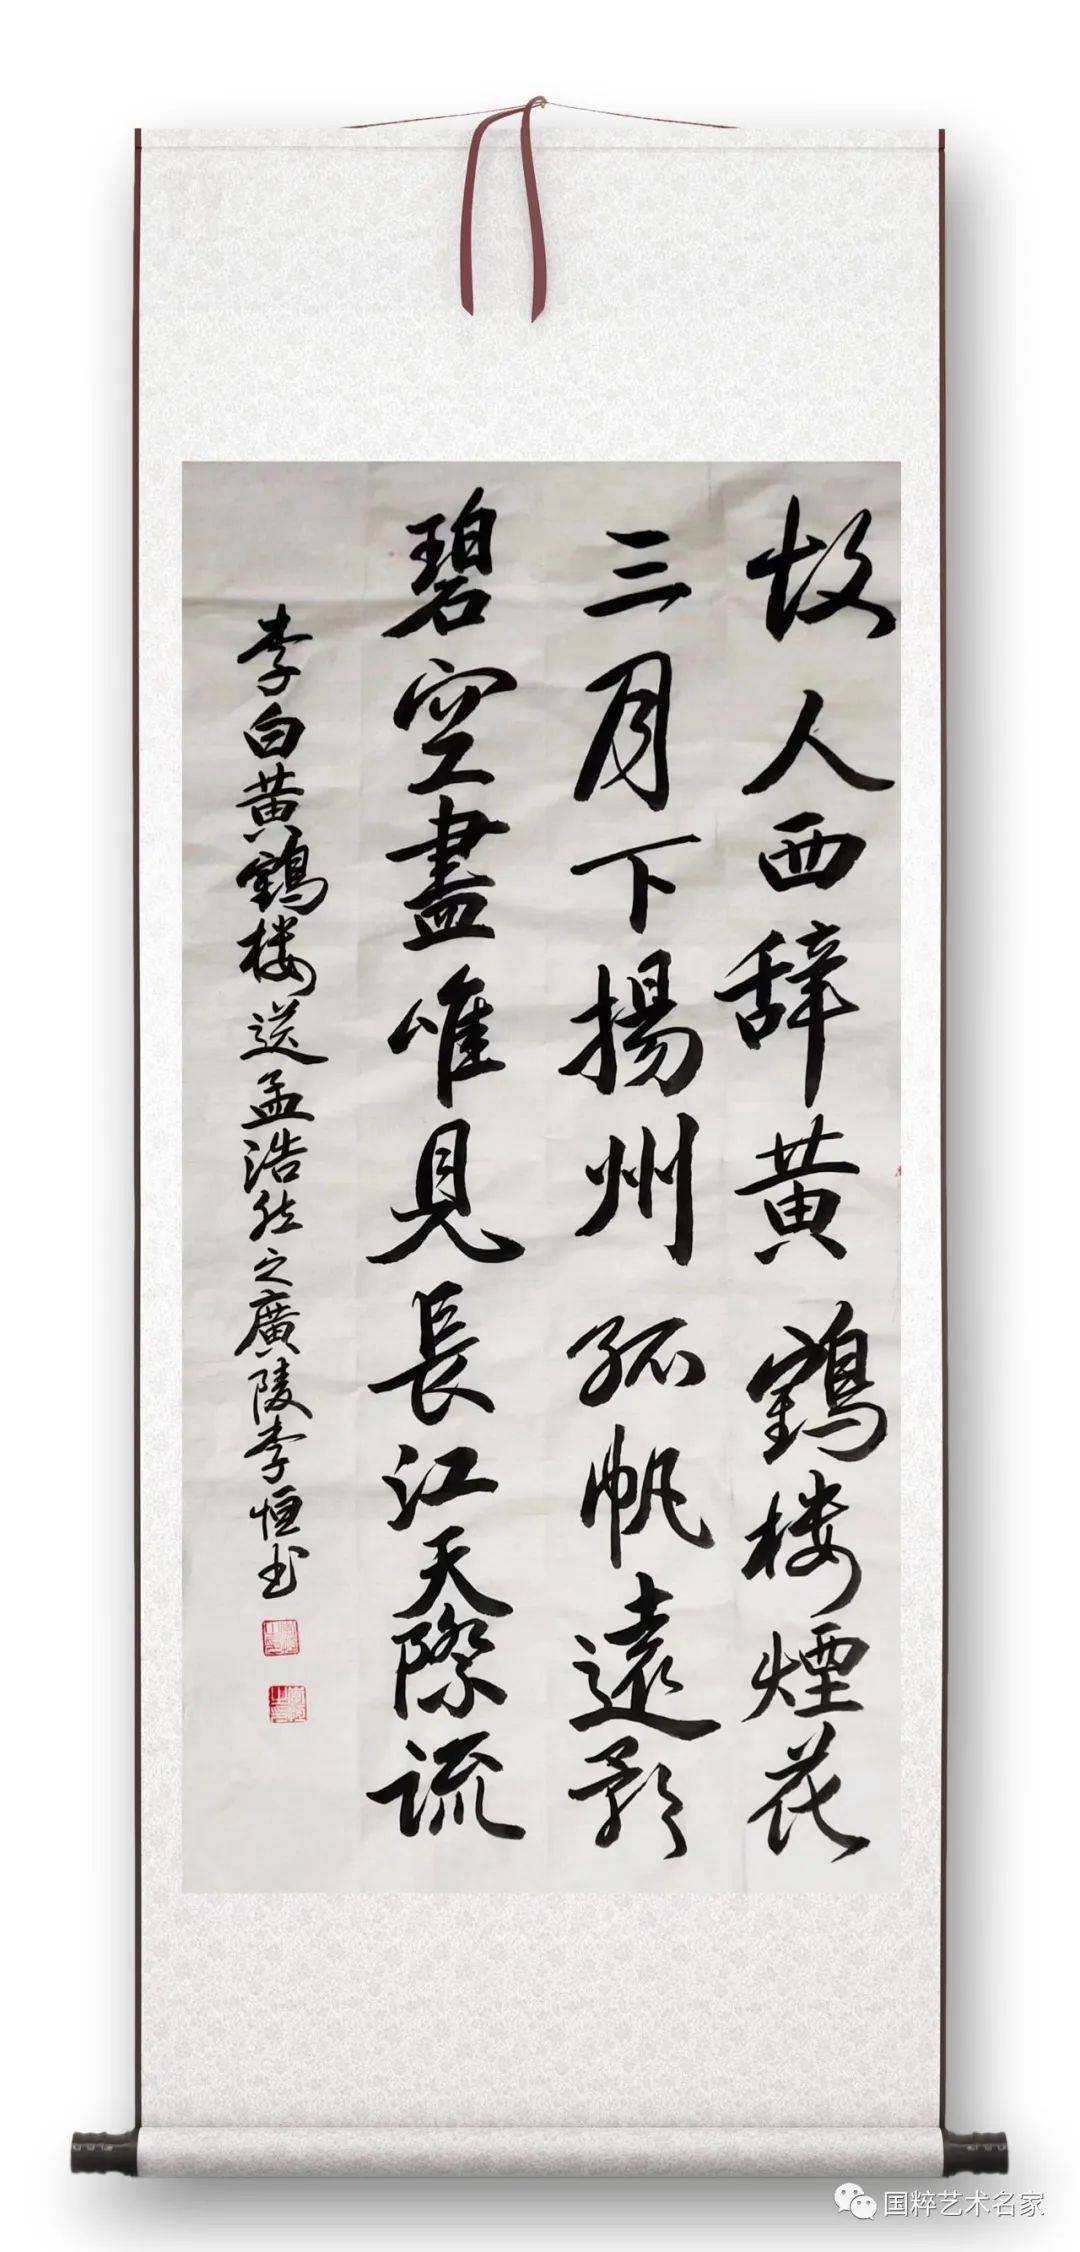 故人西辞黄鹤楼煙花
三月下揚州孤帆遠影
碧空盡唯見長江天際流
李白黄鶴楼送孟浩然之廣陵李恒书
国粹艺术名家